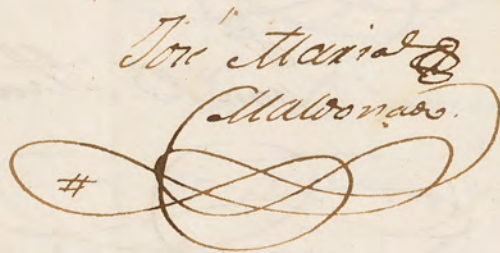 José Maria
Maldonado.
#